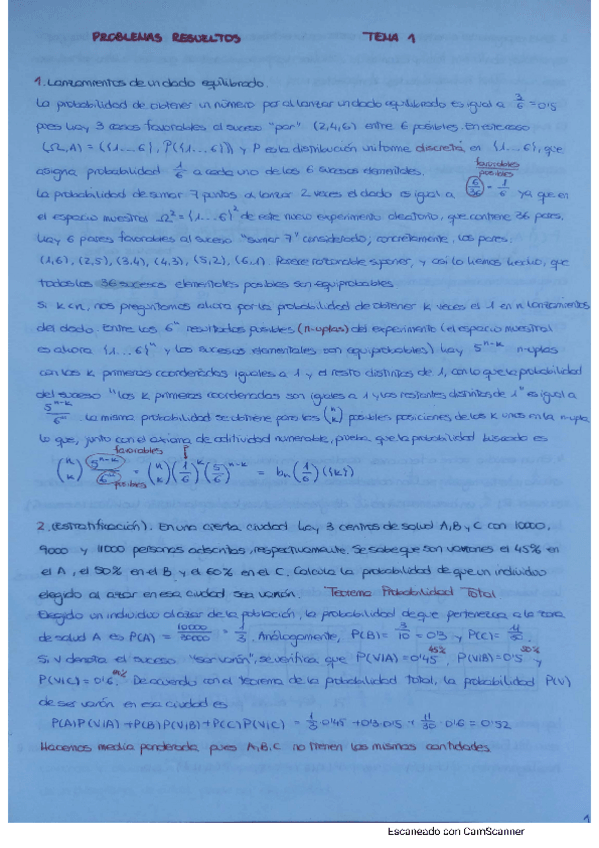 PROBLEMAS RESUELTOS TEMA 1
1. Lanzamientos de un dado equilibrado.
La probabilidad de obtener un número par al lanzar un dado equilibrado es igual a 3/6 = 0'5
pues hay 3 casos favorables al suceso "par" (2,4,6) entre 6 posibles. En este caso
(Ω, A) = ({1...6}, P({1...6})) y P es la distribución uniforme discreta en {1...6}, que
asigna probabilidad 1/6 a cada uno de los 6 sucesos elementales. favorables
posibles
La probabilidad de sumar 7 puntos al lanzar 2 veces el dado es igual a 6/36 = 1/6 ya que en
el espacio muestral Ω² = {1...6}² de este nuevo experimento aleatorio, que contiene 36 pares,
hay 6 pares favorables al suceso "sumar 7" considerado, concretamente, los pares:
(1,6), (2,5), (3,4), (4,3), (5,2), (6,1). Parece razonable suponer, y así lo hemos hecho, que
todos los 36 sucesos elementales posibles son equiprobables.
Si k<n, nos preguntamos ahora por la probabilidad de obtener k veces el 1 en n lanzamientos
del dado. Entre los 6ⁿ resultados posibles (n-uplas) del experimento (el espacio muestral
es ahora {1...6}ⁿ y los sucesos elementales son equiprobables) hay 5ⁿ⁻ᵏ n-uplas
con las k primeras coordenadas iguales a 1 y el resto distintos de 1, con lo que la probabilidad
del suceso "las k primeras coordenadas son iguales a 1 y las restantes distintas de 1" es igual a
5ⁿ⁻ᵏ/6ⁿ. La misma probabilidad se obtiene para las (n k) posibles posiciones de los k unos en la n-upla
lo que, junto con el axioma de aditividad numerable, prueba que la probabilidad buscada es
favorables
(n k) 5ⁿ⁻ᵏ/6ⁿ = (n k) (1/6)ᵏ (5/6)ⁿ⁻ᵏ = bₙ(1/6)({k})
posibles
2. (Estratificación). En una cierta ciudad hay 3 centros de salud A, B y C con 10000,
9000 y 11000 personas adscritas, respectivamente. Se sabe que son varones el 45% en
el A, el 50% en el B y el 60% en el C. Calcula la probabilidad de que un individuo
elegido al azar en esa ciudad sea varón. Teorema Probabilidad Total
Elegido un individuo al azar de la población, la probabilidad de que pertenezca a la zona
de salud A es P(A) = 10000/30000 = 1/3. Análogamente, P(B) = 3/10 = 0'3 y P(C) = 11/30.
45% 50%
Si V denota el suceso "ser varón", se verifica que P(V|A) = 0'45, P(V|B) = 0'5 y
P(V|C) = 0'6. De acuerdo con el teorema de la probabilidad total, la probabilidad P(V)
de ser varón en esa ciudad es
P(A)P(V|A) + P(B)P(V|B) + P(C)P(V|C) = 1/3·0'45 + 0'3·0'5 + 11/30·0'6 = 0'52
Hacemos media ponderada pues A, B, C no tienen las mismas cantidades
1
Escaneado con CamScanner